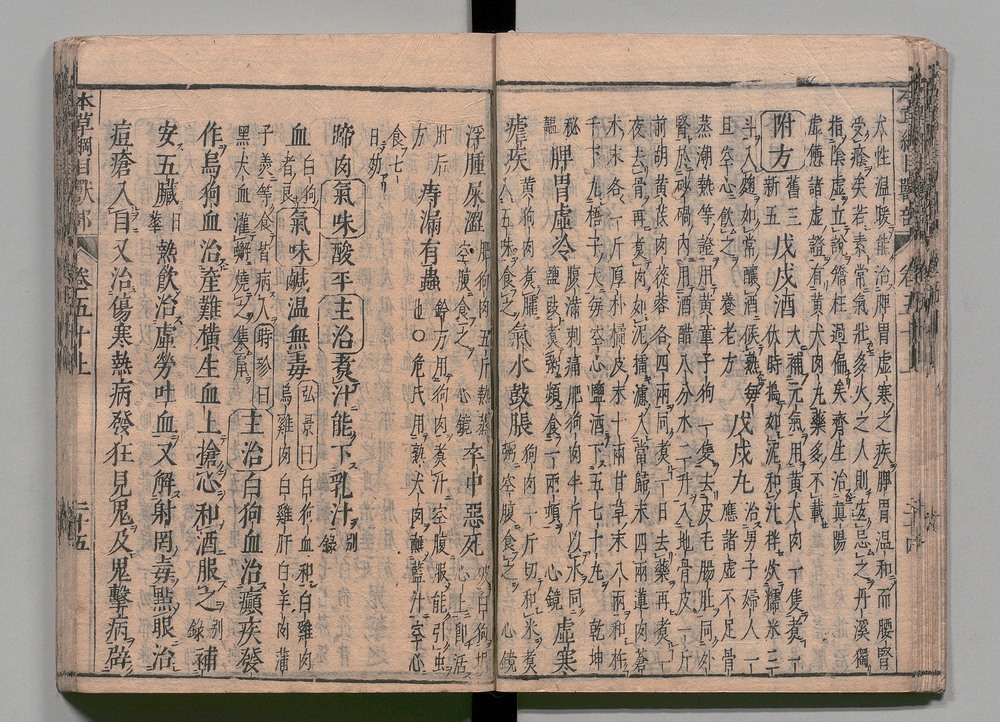 犬性温暖能治脾胃虚寒之疾脾胃温和而腰腎
受䕃矣若素常氣壯多火之人則宜忌之丹溪獨
指陰虚立說矯枉過偏矣濟生治眞陽
虚憊諸虚證有黄犬肉丸藥多不載
附方 舊三新五 戊戌酒 大補元氣用黄犬肉一隻煮一
伏時搗如泥和汁拌炊糯米三
斗入麹如常釀酒候熟每
旦空心飲之 養老方 戊戌丸 治男子婦人一
應諸虚不足骨
蒸潮熱等證用黄童子狗一隻去皮毛腸肚同外
腎於砂鍋内用酒醋八分水二升入地骨皮一斤
前胡黄芪肉蓯蓉各四兩同煮一日去藥再煮一
夜去骨再煮肉如泥擂濾入當歸末四兩蓮肉蒼
术末各一斤厚朴橘皮末十兩甘草末八兩和杵
千下丸梧子大每空心鹽酒下五七十丸 乾坤
秘韞 脾胃虚冷 腹滿刺痛肥狗肉半斤以水同
鹽豉煮粥頻食一兩頓 心鏡 虚寒
瘧疾 黄狗肉煮臛
入五味食之 氣水鼓脹 狗肉一斤切和米煮
粥空腹食之 心鏡
浮腫屎澀 肥狗肉五斤熟蒸
空腹食之 心鏡 卒中惡死 破白狗搨
心上卽活
肘后方 痔漏有蟲 鈐方用狗肉煮汁空腹服能引蟲
也○危氏用熟犬肉蘸藍汁空心
食七
日効
蹄肉 氣味 酸平 主治 煮汁能下乳汁 別錄
血 白狗
者良 氣味 鹹温無毒 弘景曰 白狗血和白雞肉
烏雞肉白雞肝白羊肉蒲
子羮等食皆病人 時珍曰
黑犬血灌蟹燒之集鼠 主治 白狗血治癲疾發
作烏狗血治産難横生血上搶心和酒服之 別錄 補
安五臟 日華 熱飲治虚勞吐血又解射罔毒點眼治
痘瘡入目又治傷寒熱病發狂見鬼及鬼擊病辟
本草綱目獸部 卷五十上 二十五